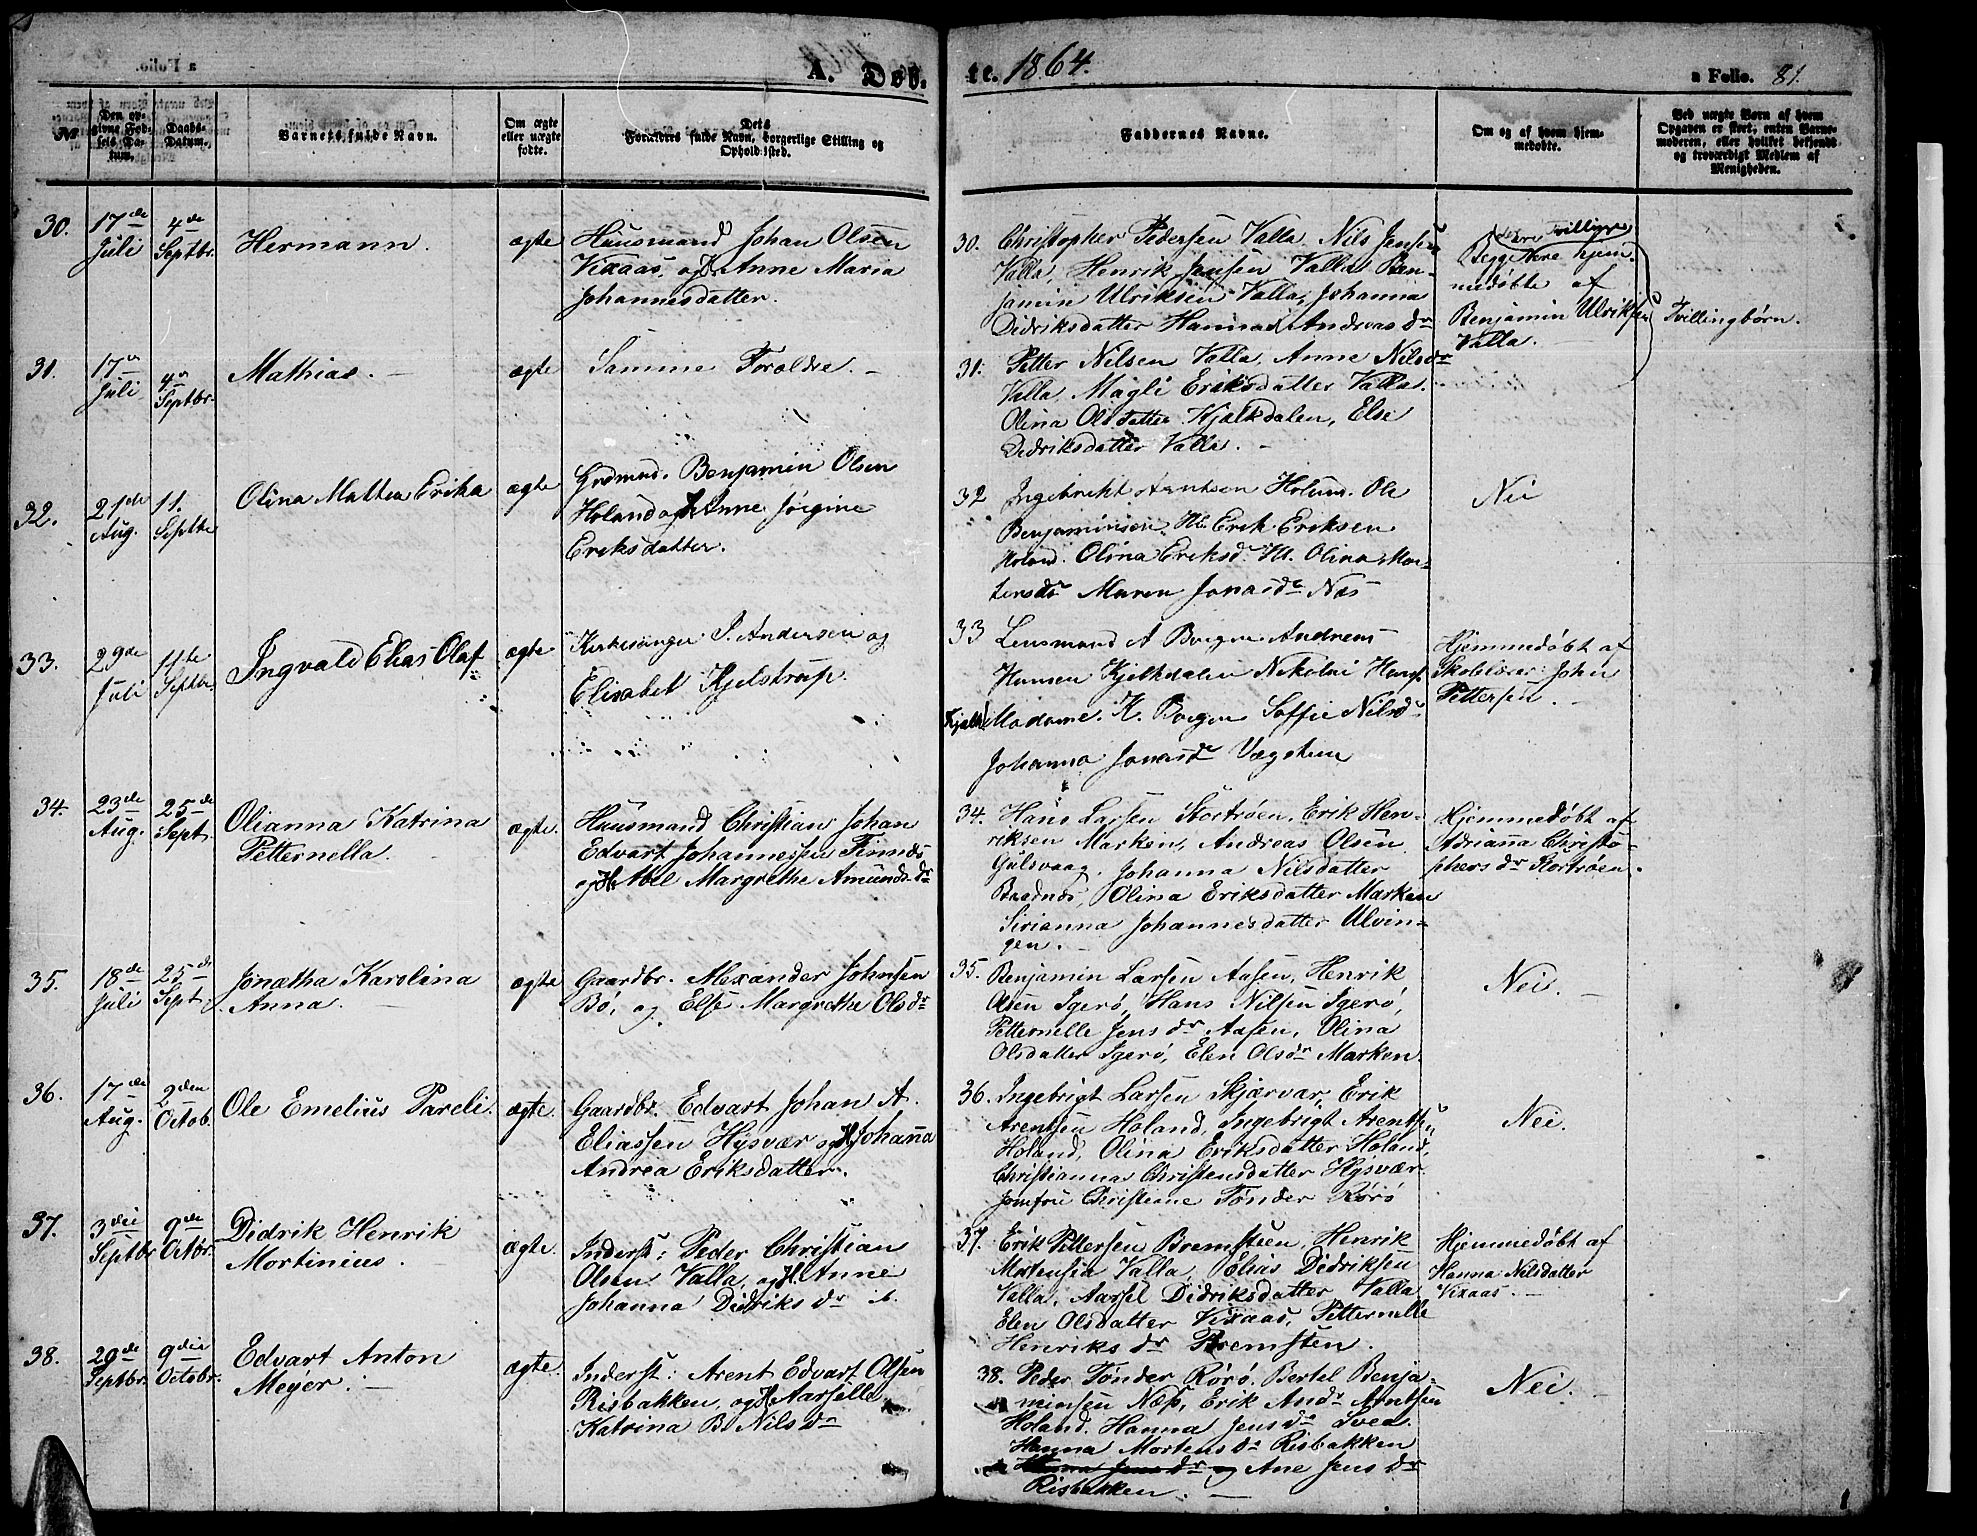 A. Døb-
te. 1864.
a Folio. 81.
№
Den op-
givne Fød-
sels Da-
tum.
Daabs-
Datum.
Barnets fulde Navn.
Om ægte
eller uægte
fødte.
Dets
Forældres fulde Navn, borgerlige Stilling og
Opholdssted.
Faddernes Navne.
Om og af hvem hjem-
medøbte.
Ved uægte Børn af hvem
Opgaven er skeet, enten Barne-
moderen, eller hvilket bekjendt
og troværdigt Medlem af
Menigheden.
30.
17de
Juli
4de
Septbr.
Hermann.
ægte
Huusmand Johan Olsen
Vixaas, og H Anne Maria
Johannesdatter.
30. Christopher Pedersen Valla, Nils Jensen
Valla, Henrik Jensen Valla, Ben-
jamin Ulriksen Valla, Johanna
Didriksdatter Hanna Andreas dr
Tvillinger
Begge ere hjem-
medøbte af
Benjamin Ulriksen
Valla.
Tvillingbørn.
31.
17de
Juli
4de
Septbr.
Mathias.
ægte
Samme Foraldre.
31. Petter Nilsen Valla, Anne Nilsdr
Valla, Magli Eriksdatter Valla.
Olina Olsdatter Kjalkdalen, Else
Didriksdatter Valla.
32.
21de
Aug.
11.
Septbr
Olina Mathea Erika
ægte
Grdmnd. Benjamin Olsen
Holand og H Anne Jørgine
Eriksdatter.
32 Ingebrikt Arntsen Holand. Ole
Benjaminsen Hl. Erik Eriksen
Holand. Olina Eriksd. Hl. Olina Mor-
tensdr Maren Jonasdr Næs
Nei
33.
29de
Juli
11te
Septbr.
Ingvald Elias Olaf
ægte
Kirkesanger P. Andersen og
Elisabet Kjelstrup.
33 Lensmand A Boegen Andreas
Hansen Kjelkdalen Nikolai Hans.
Kjalkd Madame. K. Boegen Soffie Nilsdr
Johanna Jonasdr Vægsteen
Hjemmedøbt af
Skolelærer John
Pettersen.
34.
23de
Aug.
25de
Sept.
Olianna Katrina
Petternella.
ægte.
Huusmand Christian Johan
Edvart Johannessen Finnes
og H Abel Margrethe Amundsdr
34. Hans Larsen Stortrøen, Erik Hen-
riksen Marken, Andreas Olsen
Gulsvaag, Johanna Nilsdatter
Brednæs, Olina Eriksdatter Marken
Sirianna Johannesdatter Ulvin-
gen.
Hjemmedøbt af
Adrianna Christo-
phers dr Stortrøen.
35.
18de
Juli
25de
Sept.
Jonatha Karolina
Anna.
ægte
Gaardbr. Alexander Johnsen
Bø, og Else Margrethe Olsdr
35. Benjamin Larsen Aasen, Henrik
Olsen Igerø, Hans Nilsen Igerø,
Petternelle Jens dr Aasen, Olina
Olsdatter Igerø, Elen Olsdr Marken
Nei.
36.
17de
Aug.
2den
Octob.
Ole Emelius Pareli.
ægte.
Gaardbr. Edvart Johan A.
Eliassen Hysvær og H Johanna
Andrea Eriksdatter.
36. Ingebrigt Larsen Skjærvær, Erik
Arentsen Holand, Ingebrigt Arentsen
Holand, Olina Eriksdatter Holand,
Christianna Christensdatter Hysvær
Jomfru Christiane Tønder Rørø
Nei.
37.
3die
Septbr
9de
Octbr.
Didrik Henrik
Mortinius.
ægte.
Inderst: Peder Christian
Olsen Valla, og H. Anne
Johanna Didriks dr
37. Erik Pettersen Bremsteen, Henrik
Mortensen Valla, Elias Didriksen
Valla, Aarsel Didriksdatter Valla
Elen Olsdatter Vixaas, Petternelle
Henriks dr Bremsten.
Hjemmedøbt af
Hanna Nilsdatter
Vixaas.
38.
20de
Septbr.
9de
Octobr.
Edvart Anton
Meyer.
ægte.
Inderst: Arent Edvart Olsen
Risbakken, og H Aarselle
Katrina B. Nils dr
38. Peder Tønder Rørø, Bertel Benja-
minsen Næss, Erik Andr Arntsen
Holand. Hanna Jens dr Svea.
Hanna Mortens dr Risbakken
Hanna Jens dr og Ane Jens dr
Risbakken.
Nei.